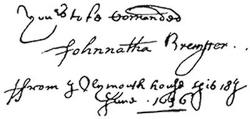 Yours to be Comanded
Johnnatha Brewster.
ffrom ye Plymouth house this 18th
June 1636